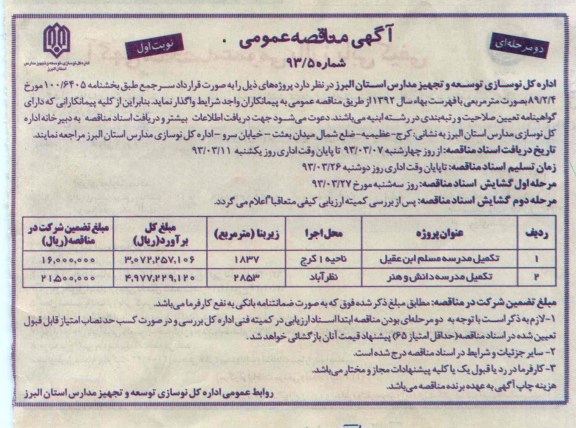 آگهی مناقصه عمومی
شماره ۹۳/۵
دو مرحله‌ای
نوبت اول
اداره کل نوسازی توسعه و تجهیز مدارس استان البرز در نظر دارد پروژه‌های ذیل را به صورت قرارداد سر جمع طبق بخشنامه ۱۰۰/۶۴۰۵ مورخ
۸۹/۲/۴ بصورت مترمربعی با فهرست بهاء سال ۱۳۹۲ از طریق مناقصه عمومی به پیمانکاران واجد شرایط واگذار نماید. بنابراین از کلیه پیمانکارانی که دارای
گواهینامه تعیین صلاحیت و رتبه‌بندی در رشته ابنیه می‌باشند. دعوت می‌شود جهت دریافت اطلاعات بیشتر و دریافت اسناد مناقصه به دبیرخانه اداره
کل نوسازی مدارس استان البرز به نشانی: کرج-عظیمیه-ضلع شمال میدان بعثت - خیابان سرو -اداره کل نوسازی مدارس استان البرز مراجعه نمایند.
تاریخ دریافت اسناد مناقصه: از روز چهارشنبه ۹۳/۰۳/۰۷ تا پایان وقت اداری روز یکشنبه ۹۳/۰۳/۱۱
زمان تسلیم اسناد مناقصه: تا پایان وقت اداری روز دوشنبه ۹۳/۰۳/۲۶
مرحله اول گشایش اسناد مناقصه: روز سه‌شنبه مورخ ۹۳/۰۳/۲۷
مرحله دوم گشایش اسناد مناقصه: پس از بررسی کمیته ارزیابی کیفی متعاقباً اعلام می گردد.
ردیف عنوان پروژه محل اجرا زیربنا (مترمربع) مبلغ کل برآورد(ریال) مبلغ تضمین شرکت در مناقصه(ریال)
۱ تکمیل مدرسه مسلم ابن عقیل ناحیه ۱ کرج ۱۸۳۷ ۳,۰۷۲,۲۵۷,۱۰۶ ۱۶,۰۰۰,۰۰۰
۲ تکمیل مدرسه دانش و هنر نظرآباد ۲۸۵۳ ۴,۹۷۷,۲۲۹,۱۲۰ ۲۱,۵۰۰,۰۰۰
مبلغ تضمین شرکت در مناقصه: مطابق مبلغ ذکر شده فوق که به صورت ضمانتنامه بانکی به نفع کارفرما می‌باشد.
۱-لازم به ذکر است با توجه به دو مرحله‌ای بودن مناقصه ابتدا اسناد ارزیابی در کمیته فنی اداره کل بررسی و در صورت کسب حد نصاب امتیاز قابل قبول
تعیین شده در اسناد مناقصه(حداقل امتیاز ۶۵) پیشنهاد قیمت آنان بازگشائی خواهد شد.
۲- سایر جزئیات و شرایط در اسناد مناقصه درج شده است.
۳-کارفرما در رد یا قبول یک یا کلیه پیشنهادات مجاز و مختار می‌باشد.
هزینه چاپ آگهی به عهده برنده مناقصه می‌باشد.
روابط عمومی اداره کل نوسازی توسعه و تجهیز مدارس استان البرز